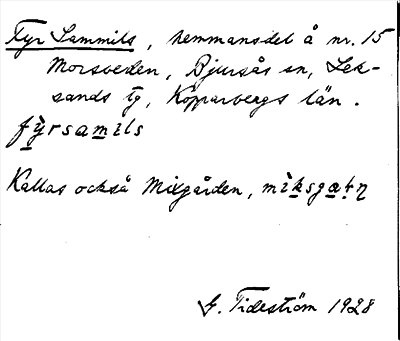 Fyr Sammils, hemmansdel å nr. 15
Morsveden, Bjursås sn, Lek-
sands tg, Kopparbergs län.
fỳrsamils
Kallas också Mixgården, mìksgaṛη
G. Tideström 1928